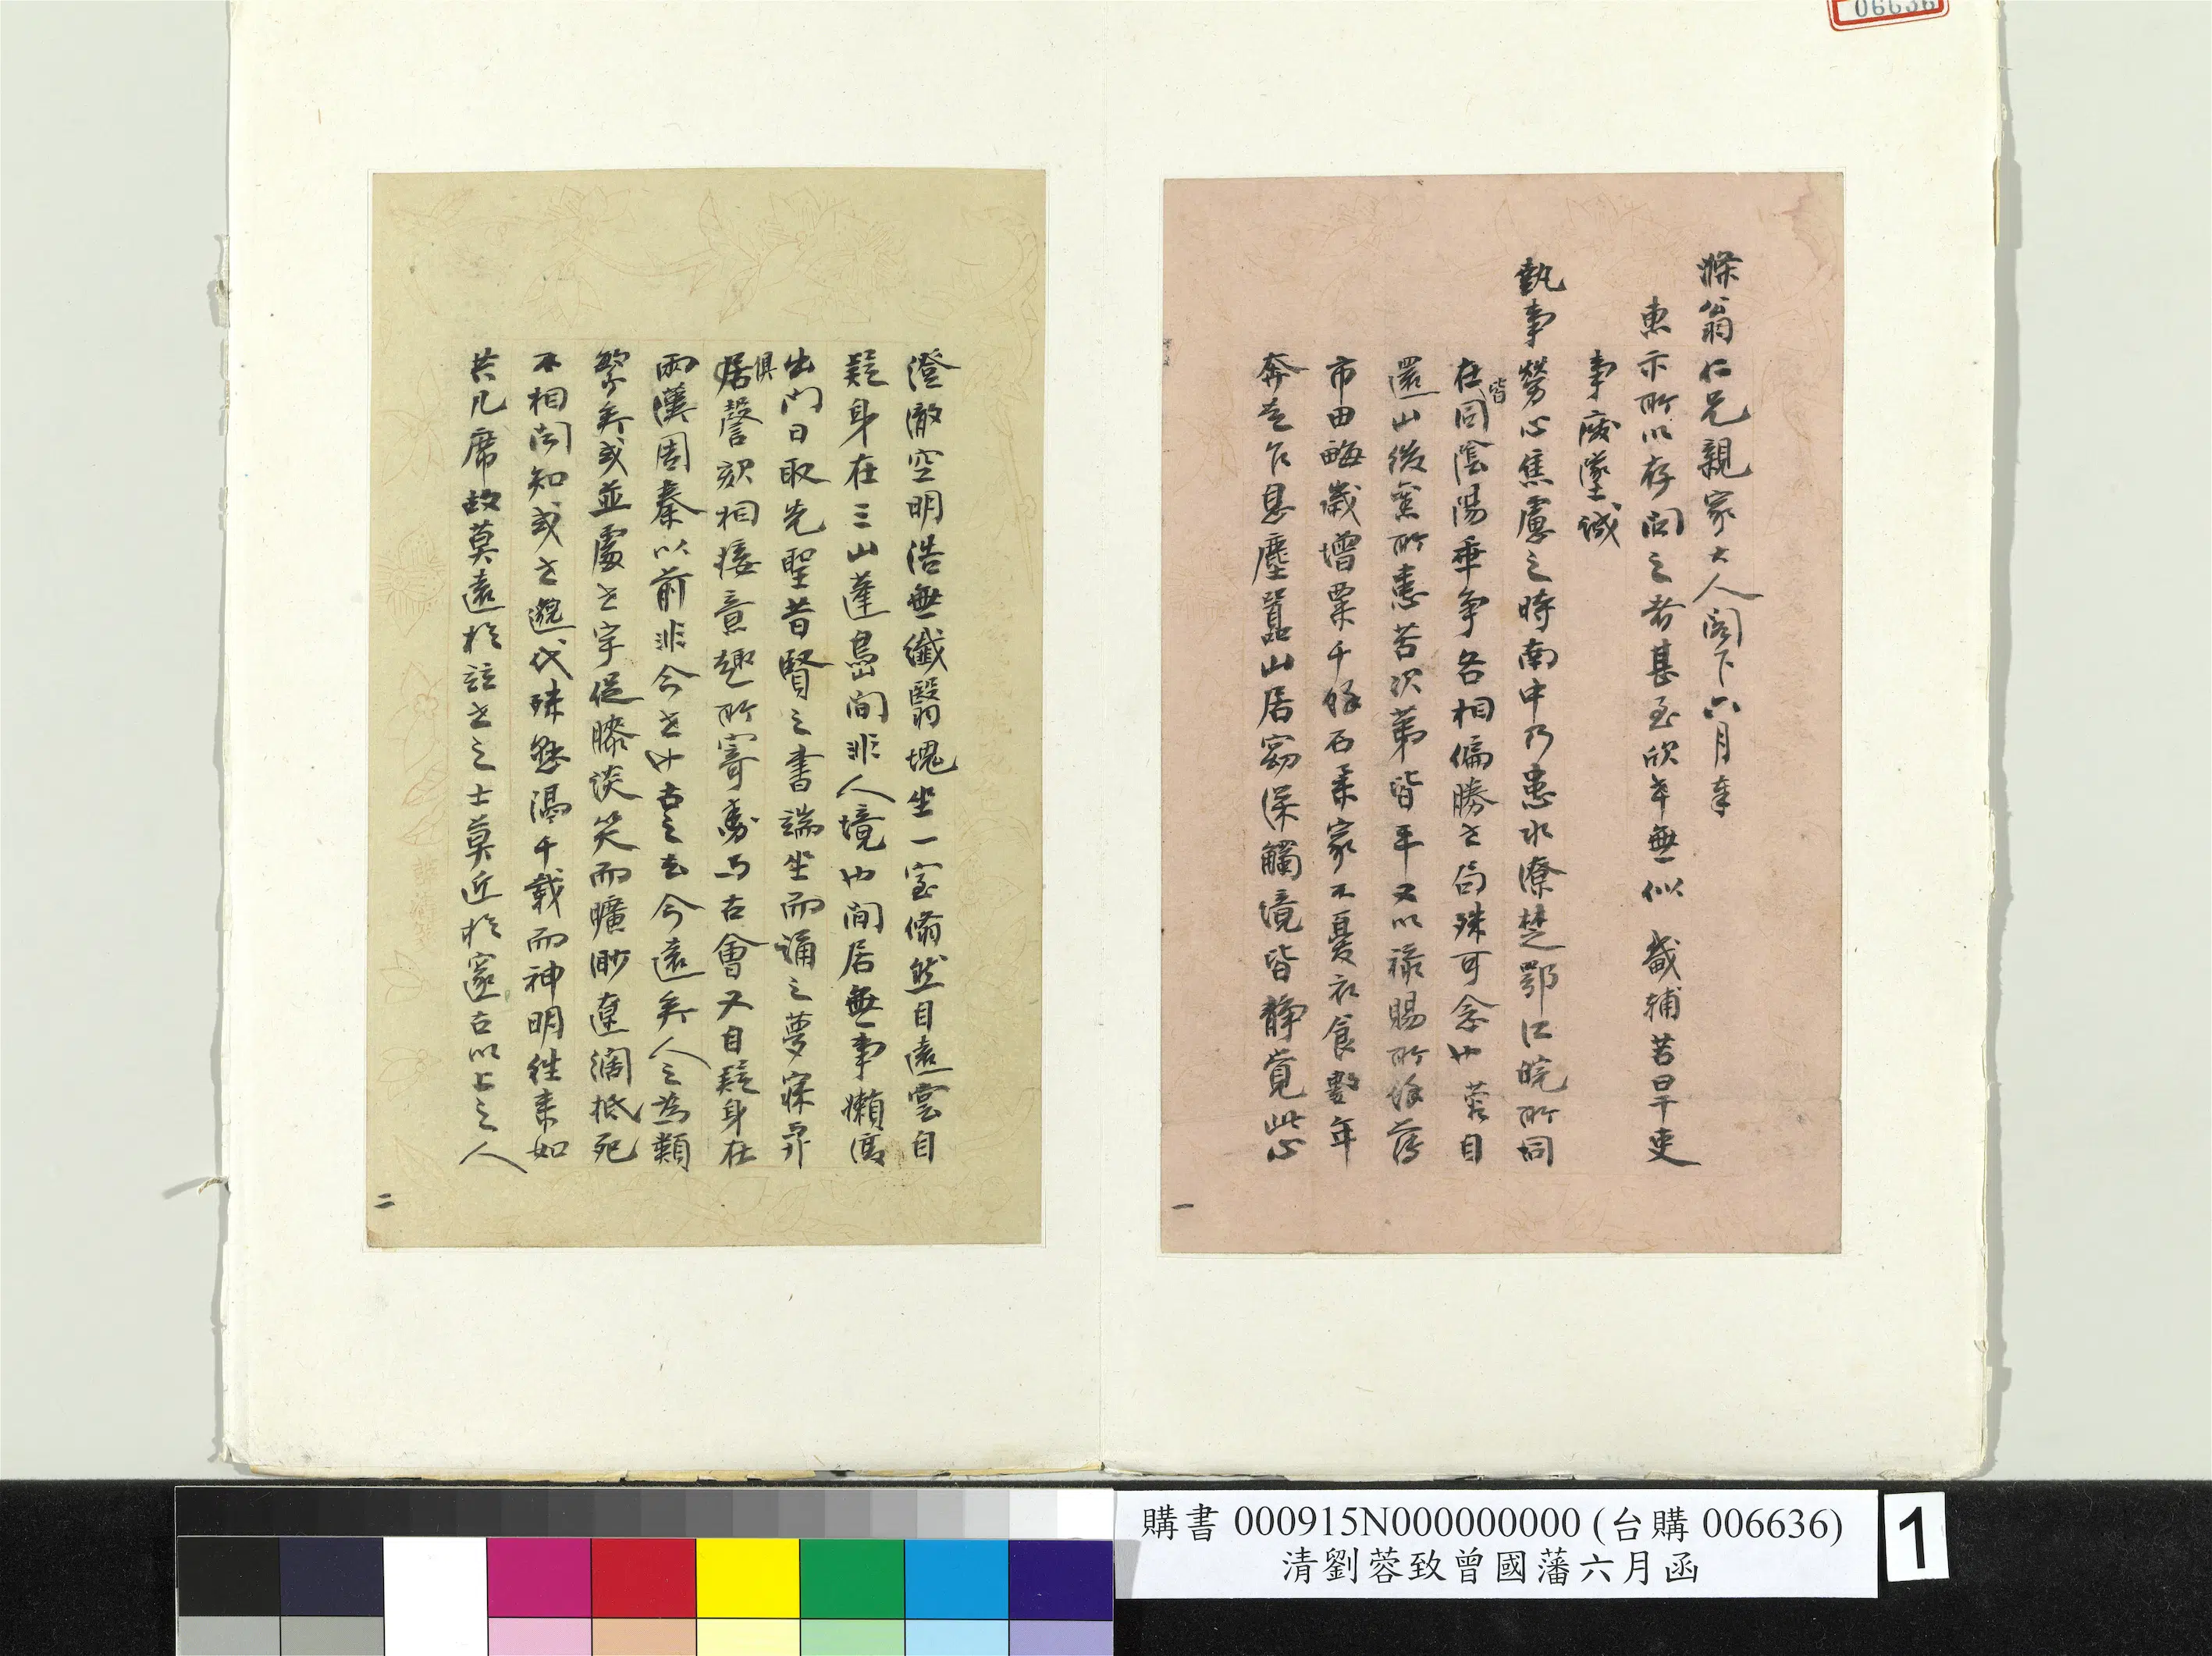 06636
滌翁仁兄親家大人閣下六月奉
惠示所以存問之者甚至欣幸無似 畿輔苦旱吏
事廢墜誠
執事勞心焦慮之時南中乃患水潦楚鄂江皖所同
在皆同陰陽乖爭各相偏勝世局殊可念也 蓉自
還山後舊所患苦次第皆平又以祿賜所餘薄
市田畝歲增粟千餘石柔家不憂衣食數年
奔走乍息塵囂山居窈深觸境皆靜覺此心
一
澄澈空明浩無纖翳塊坐一室翛然自遠雲自
疑身在三山蓬島間非人境也閒居無事懶復
出門日取先聖昔賢之書端坐而誦之夢寐
俱
居謦欬相接意趣所寄動與古會又自疑身在
兩漢周秦以前非今世也古之去今遠矣人之為類
繁矣或並處世宇促膝談笑而曠眇遼闊抵死
不相聞知或世邈代殊懸隔千載而神明往來如
共几席故莫遠於並世之士莫近於邃古以上之人
二
購書 000915N000000000 (台購 006636)
清劉蓉致曾國藩六月函
1